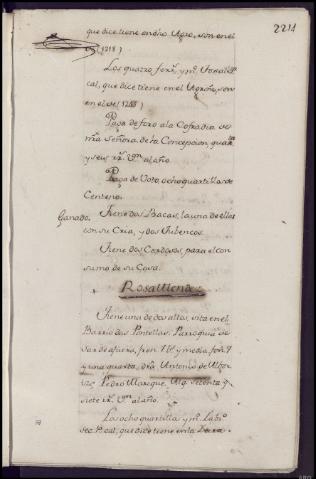 2211
que dice tiene en dho Agro, son en el
1218)
Los quatro ferr.s, y m.o
cal, que dice tiene en el Agro, son
en el de 1218)
Paga de foro a la Cofradia de
nra Señora de la Concepcion, quar.ta
y seis r.s v.on al año.
Paga de Voto, ocho quartillos de
Centeno.
Ganado. Tiene dos Bacas, la una de ellas
con su Cria, y dos Jubencos.
Tiene dos Cerdosos, para el con
sumo de su Casa.
Rosa Mende
Tiene una de dos altas, sita en el
Barrio das Pontellas, Parroquia de
Sar de afuera, fren. 7 v.s y media, fon. 7
y una quarta, dra Antonio de
Pedro Manque, Alq. setenta y
siete r.s v.on al año.
Las ocho quartillas, y m.a Lab.o
sec.o cal, que dice tiene en la